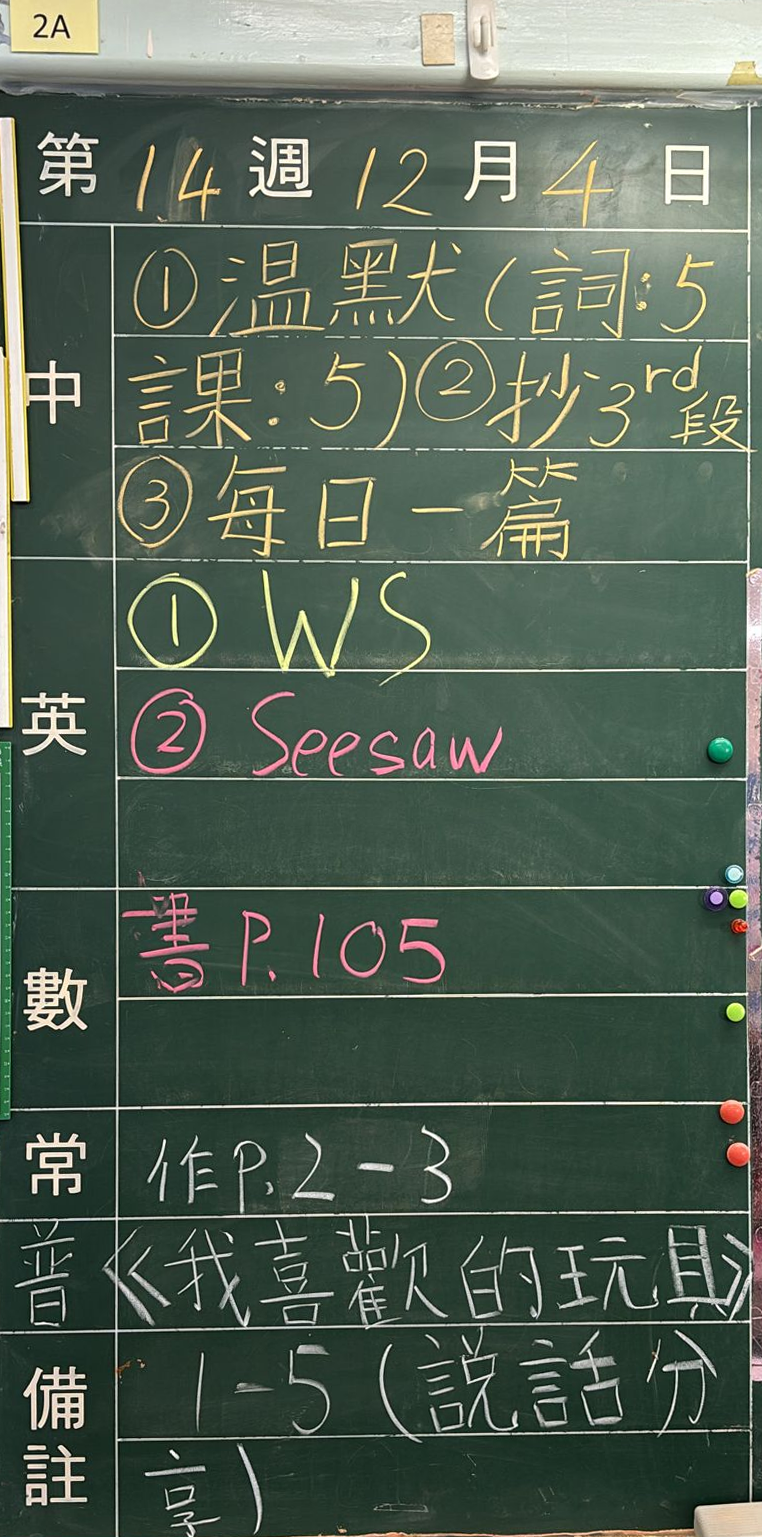 2A
第14週12月4日
中
①温默犬(詞:5
課:5)②抄3rd段
③每日一篇
英
①WS
②Seesaw
數
書P.105
常
作P.2-3
普
《我喜歡的玩具》
備註
1-5(説話分
享)